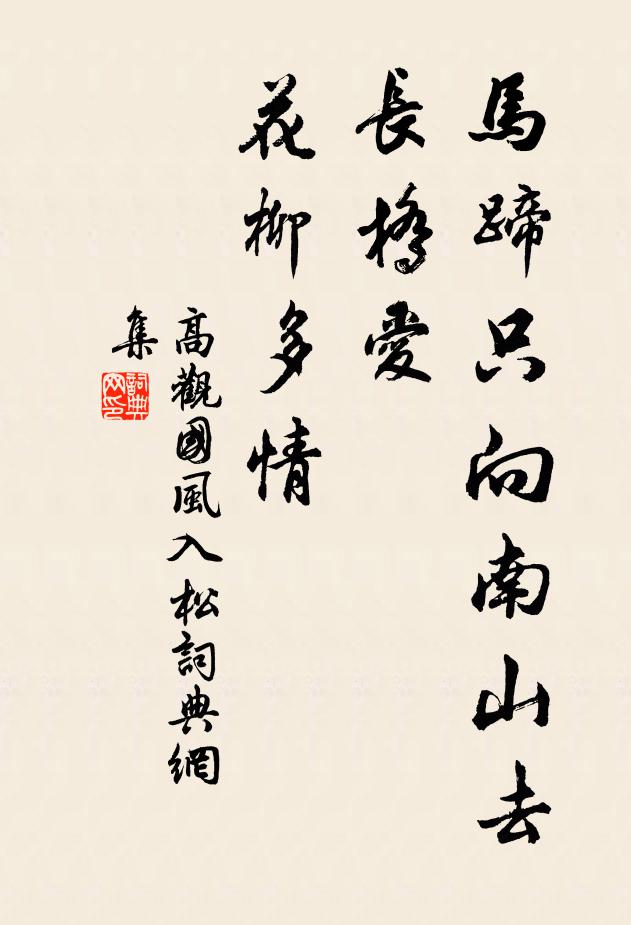 馬蹄只向南山去
長橋愛
花柳多情
高觀國風入松詞典網
集
詞典
网印